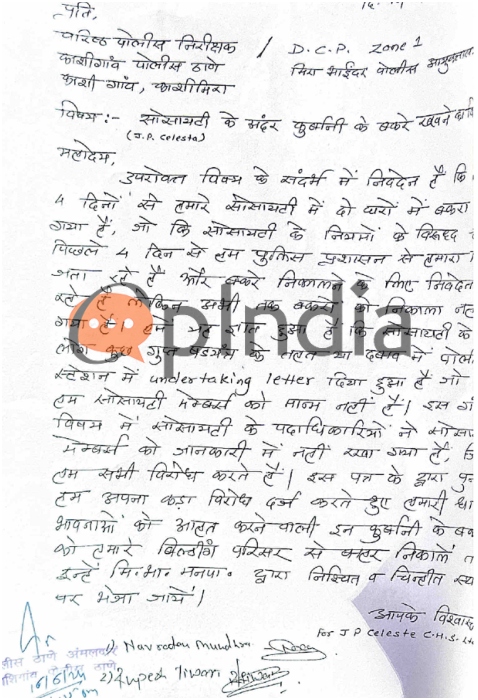 प्रति,
वरिष्ठ पोलीस निरीक्षक / D.C.P. Zone 1
काशीगांव पोलीस ठाणे मिरा भाईंदर पोलीस आयुक्तालय
काशी गांव, काशीमिरा
विषय:- सोसायटी के अंदर कुर्बानी के बकरे रखने
(J.P. Celesta)
महोदय,
उपरोक्त विषय के संदर्भ में निवेदन है कि
4 दिनों से हमारे सोसायटी में दो घरों में बकरा
गया है, जो कि सोसायटी के नियमों के विरूद्ध
पिछले 4 दिन से हम पुलिस प्रशासन से हमारा
जता रहे हैं और बकरे निकालने के लिए निवेदन
रहे हैं लेकिन अभी तक बकरों को निकाला नही
गया है। हमें यह ज्ञात हुआ है कि सोसायटी के
लोग कुछ गुप्त षडयंत्र के तहत या दबाव में पोली
स्टेशन में undertaking letter दिया हुआ है जो
हम सोसायटी मेम्बर्स को मान्य नहीं है। इस गं
विषय में सोसायटी के पदाधिकारिओं ने सोसा
मेम्बर्स को जानकारी में नहीं रखा गया है,
हम सभी विरोध करते हैं। इस पत्र के द्वारा पुन
हम अपना कड़ा विरोध दर्ज करते हुए हमारी धा
भावनाओं को आहत करने वाली इन कुर्बानी के बक
को हमारे बिल्डींग परिसर से बाहर निकालें
इन्हें मि.भा. मनपा. द्वारा निश्चित व चिन्हीत स्थ
पर भेजा जाये।
आपके विश्वास
For J P Celeste C.H.S. Ltd
1) Navratan Mundhra
2) Rupesh Tiwari
OpIndia